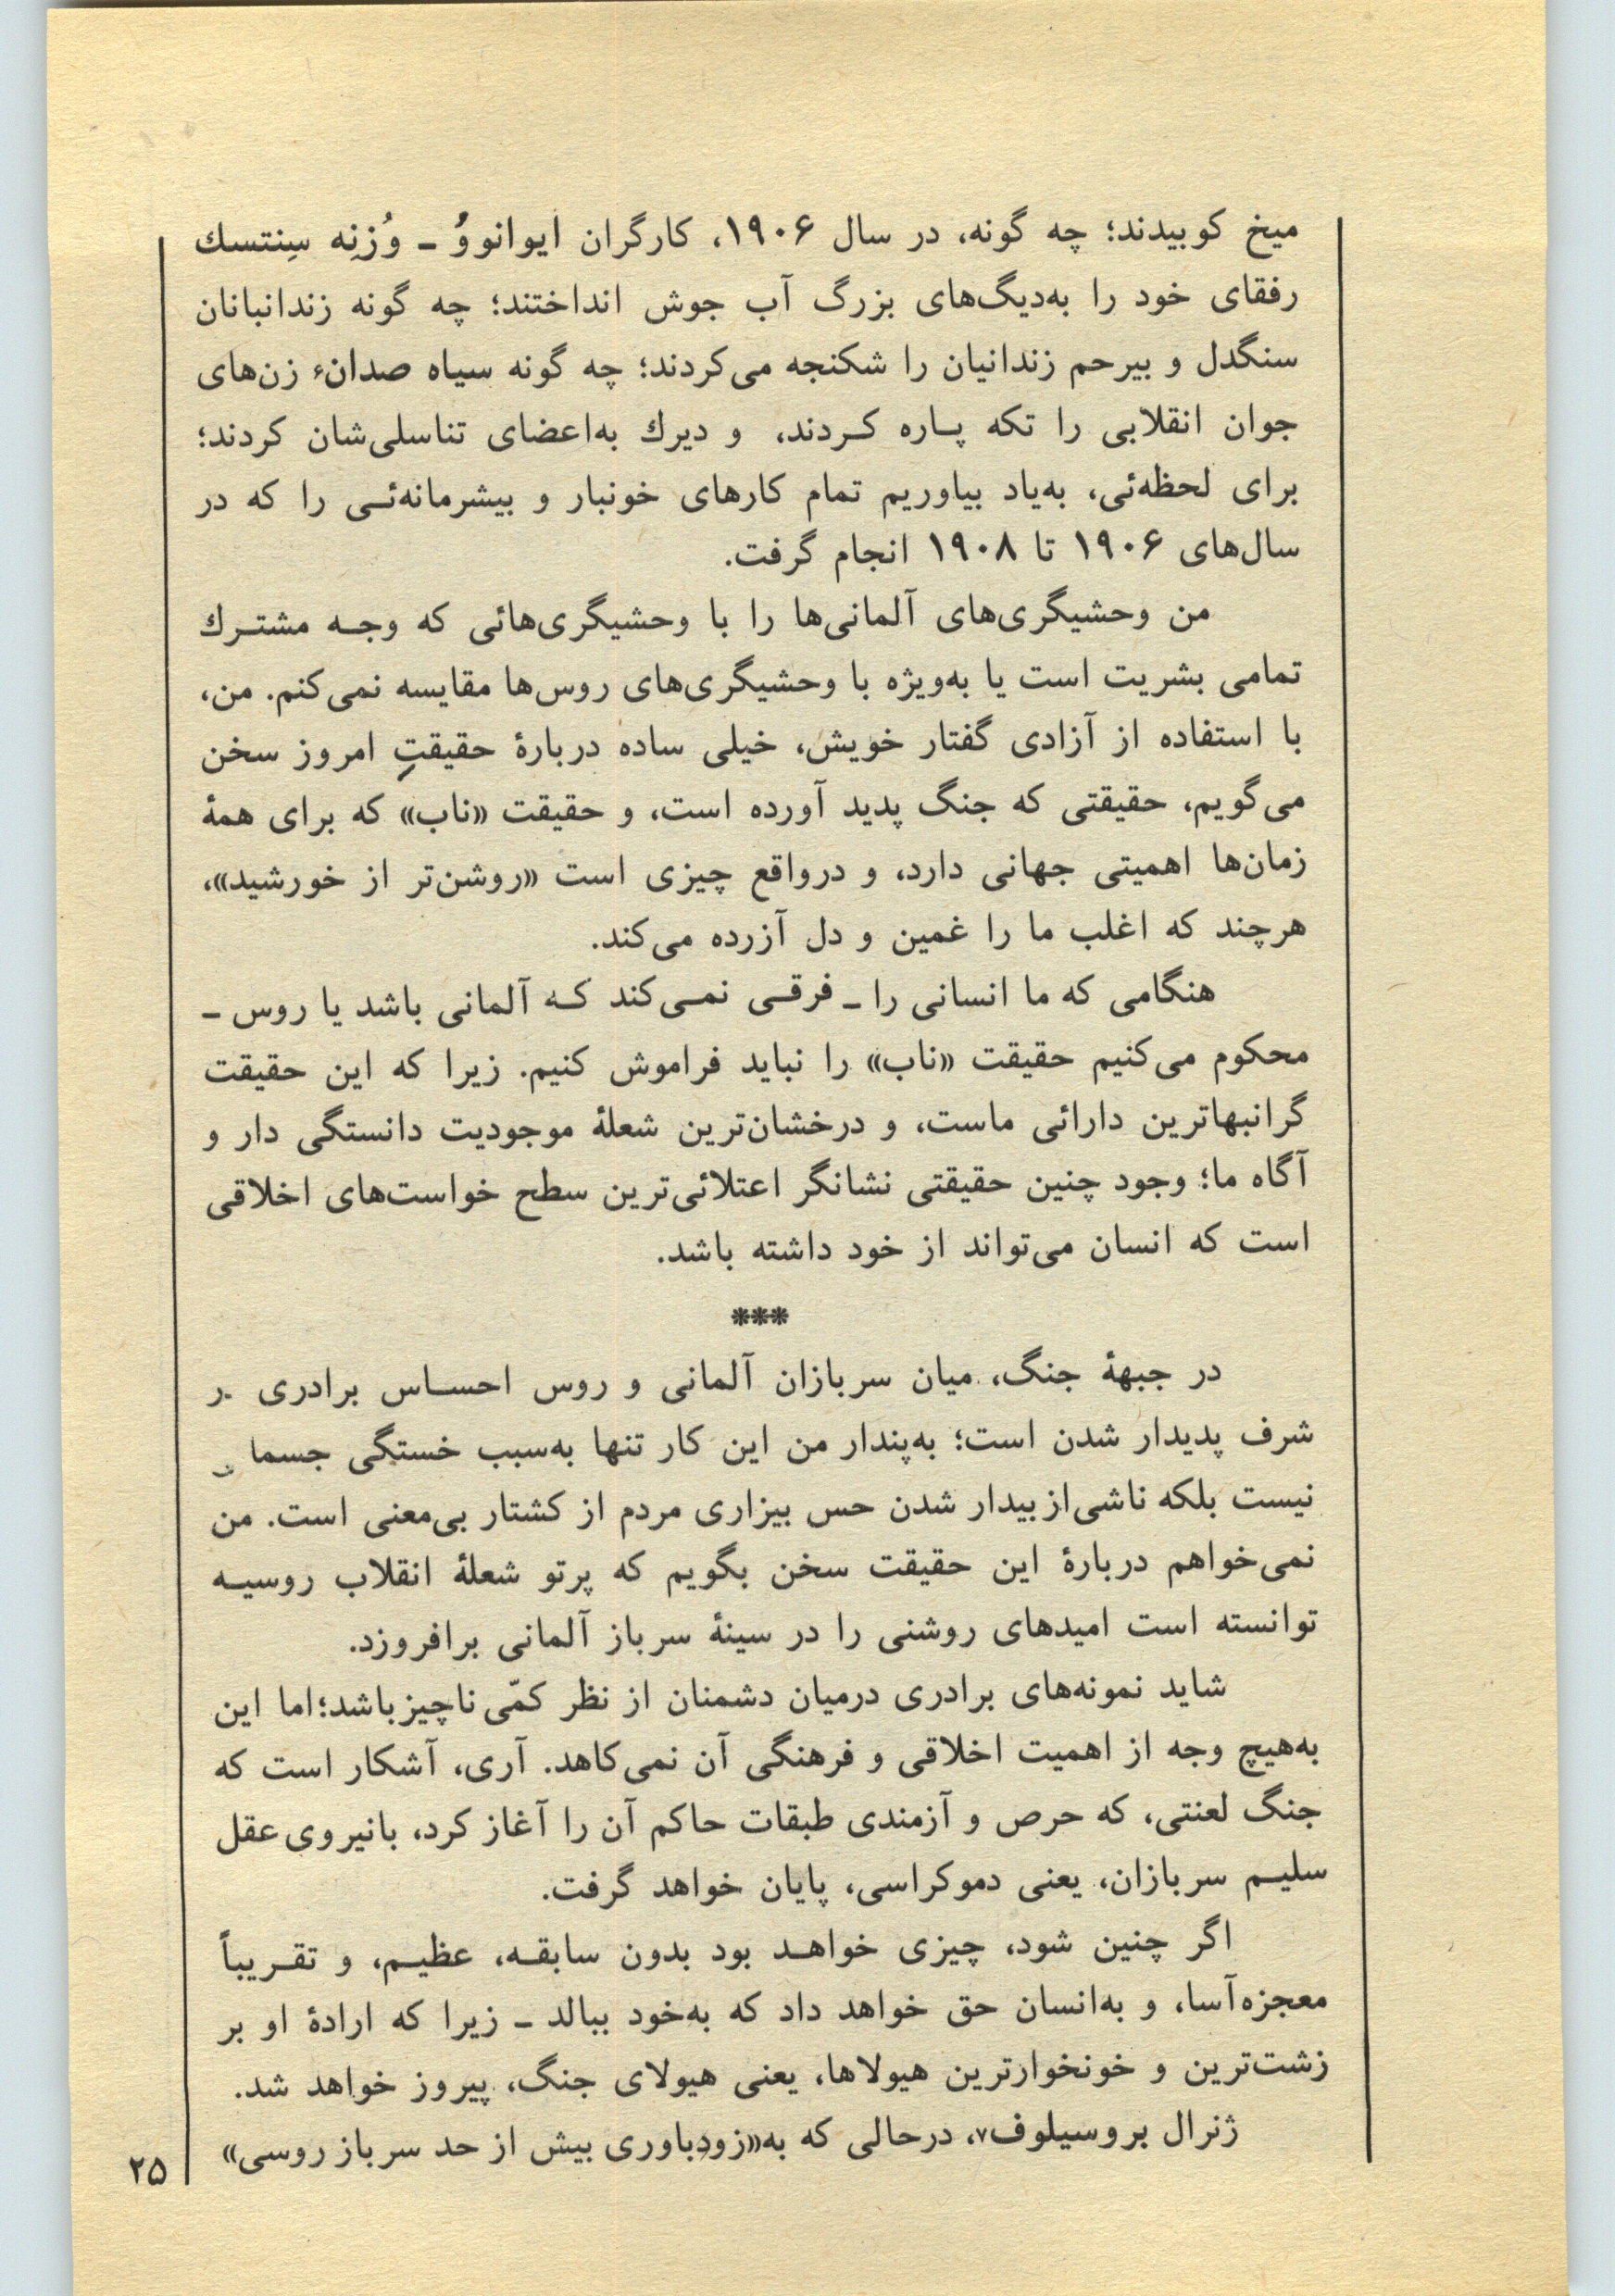 میخ کوبیدند؛ چه گونه، در سال ۱۹۰۶، کارگران ایوانووُ ـ وُزنِه سِنتسك
رفقای خود را به‌دیگ‌های بزرگ آب جوش انداختند؛ چه گونه زندانبانان
سنگدل و بیرحم زندانیان را شکنجه می‌کردند؛ چه گونه سیاه صدان۶ زن‌های
جوان انقلابی را تکه پـاره کـردند، و دیرك به‌اعضای تناسلی‌شان کردند؛
برای لحظه‌ئی، به‌یاد بیاوریم تمام کارهای خونبار و بیشرمانه‌ئـی را که در
سال‌های ۱۹۰۶ تا ۱۹۰۸ انجام گرفت.
من وحشیگری‌های آلمانی‌ها را با وحشیگری‌هائی که وجـه مشتـرك
تمامی بشریت است یا به‌ویژه با وحشیگری‌های روس‌ها مقایسه نمی‌کنم. من،
با استفاده از آزادی گفتار خویش، خیلی ساده دربارهٔ حقیقتِ امروز سخن
می‌گویم، حقیقتی که جنگ پدید آورده است، و حقیقت «ناب» که برای همهٔ
زمان‌ها اهمیتی جهانی دارد، و درواقع چیزی است «روشن‌تر از خورشید»،
هرچند که اغلب ما را غمین و دل آزرده می‌کند.
هنگامی که ما انسانی را ـ فرقـی نمـی‌کند کـه آلمانی باشد یا روس ـ
محکوم می‌کنیم حقیقت «ناب» را نباید فراموش کنیم. زیرا که این حقیقت
گرانبهاترین دارائی ماست، و درخشان‌ترین شعلهٔ موجودیت دانستگی دار و
آگاه ما؛ وجود چنین حقیقتی نشانگر اعتلائی‌ترین سطح خواست‌های اخلاقی
است که انسان می‌تواند از خود داشته باشد.
***
در جبههٔ جنگ، میان سربازان آلمانی و روس احسـاس برادری
شرف پدیدار شدن است؛ به‌پندار من این کار تنها به‌سبب خستگی
نیست بلکه ناشی‌از بیدار شدن حس بیزاری مردم از کشتار بی‌معنی است. من
نمی‌خواهم دربارهٔ این حقیقت سخن بگویم که پرتو شعلهٔ انقلاب روسیـه
توانسته است امیدهای روشنی را در سینهٔ سرباز آلمانی برافروزد.
شاید نمونه‌های برادری درمیان دشمنان از نظر کمّی ناچیز باشد؛ اما این
به‌هیچ وجه از اهمیت اخلاقی و فرهنگی آن نمی‌کاهد. آری، آشکار است که
جنگ لعنتی، که حرص و آزمندی طبقات حاکم آن را آغاز کرد، بانیروی عقل
سلیـم سربازان، یعنی دموکراسی، پایان خواهد گرفت.
اگر چنین شود، چیزی خواهـد بود بدون سابقـه، عظیـم، و تقـریباً
معجزه‌آسا، و به‌انسان حق خواهد داد که به‌خود ببالد ـ زیرا که ارادهٔ او بر
زشت‌ترین و خونخوارترین هیولاها، یعنی هیولای جنگ، پیروز خواهد شد.
ژنرال بروسیلوف۷، درحالی که به«زودباوری بیش از حد سرباز روسی»
۲۵